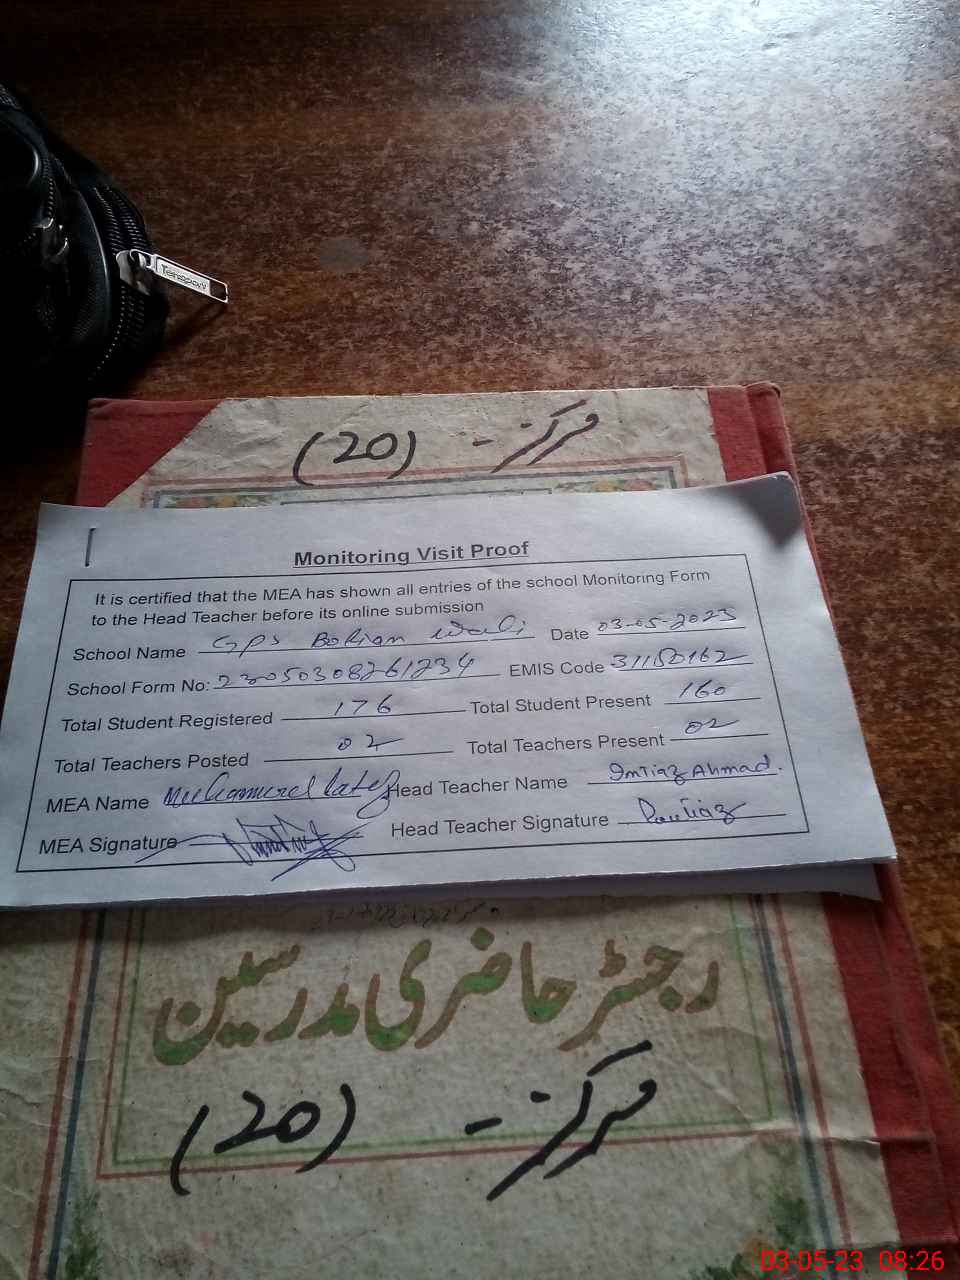 مرکز - (20)
Monitoring Visit Proof
It is certified that the MEA has shown all entries of the school Monitoring Form
to the Head Teacher before its online submission
School Name GPS Bohian Wali Date 03-05-2023
School Form No: 23050308261234 EMIS Code 31150162
Total Student Registered 176 Total Student Present 160
Total Teachers Posted 02 Total Teachers Present 02
MEA Name Muhammad Latef Head Teacher Name Imtiaz Ahmad.
MEA Signature Head Teacher Signature Imtiaz
رجسٹر حاضری مدرسین
مرکز - (20)
03-05-23 08:26